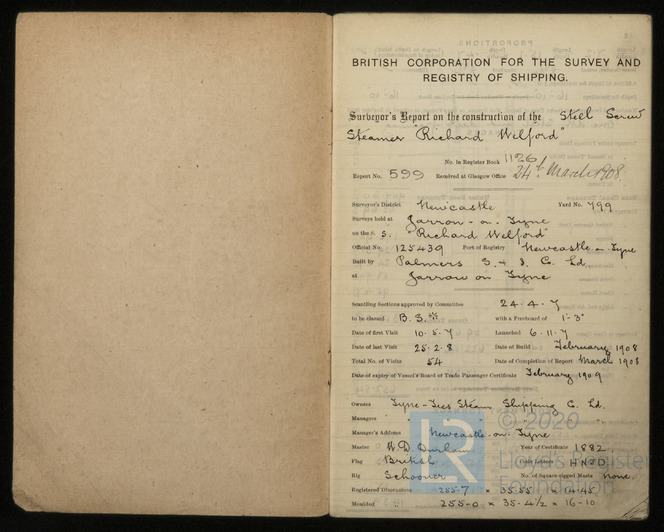 BRITISH CORPORATION FOR THE SURVEY AND
REGISTRY OF SHIPPING.
Surveyor's Report on the construction of the Steel Screw
Steamer "Richard Welford"
No. in Register Book 1126
Report No. 599 Received at Glasgow Office 24th March 1908.
Surveyor's District Newcastle Yard No. 799
Surveys held at Jarrow-on-Tyne
on the S. S. "Richard Welford"
Official No. 125439 Port of Registry Newcastle-on-Tyne
Built by Palmers S. & I. Co. Ld.
at Jarrow on Tyne
Scantling Sections approved by Committee 24.4.7
to be classed B.S.* with a Freeboard of 1'-3"
Date of first Visit 10.5.7 Launched 6.11.7
Date of last Visit 25.2.8 Date of Build February 1908
Total No. of Visits 54 Date of Completion of Report March 1908
Date of expiry of Vessel's Board of Trade Passenger Certificate February 1909
Owners Tyne-Tees Steam Shipping Co. Ld.
Managers " " " "
Manager's Address Newcastle-on-Tyne
Master W. D. Durham Year of Certificate 1882
Flag British Code Letters
Rig Schooner No. of Square-rigged Masts none
Registered Dimensions 255.7 × 35.55 × 14.45
Moulded " 255-0 × 35-4½ × 16-10
© 2020
LR
Lloyd's Register
Foundation